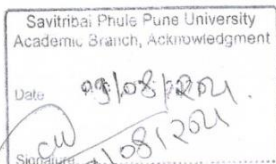 Savitribai Phule Pune University
Academic Branch, Acknowledgment
Date 09/08/2021.
Signature 09/08/2021